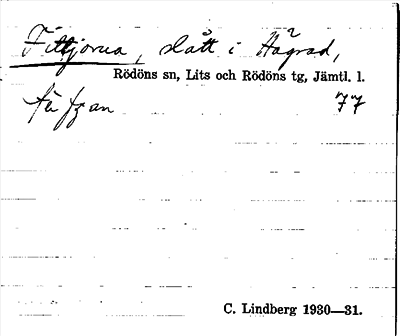 Fittjorna, slått i Hågrad,
Rödöns sn, Lits och Rödöns tg, Jämtl. l.
77
C. Lindberg 1930—31.